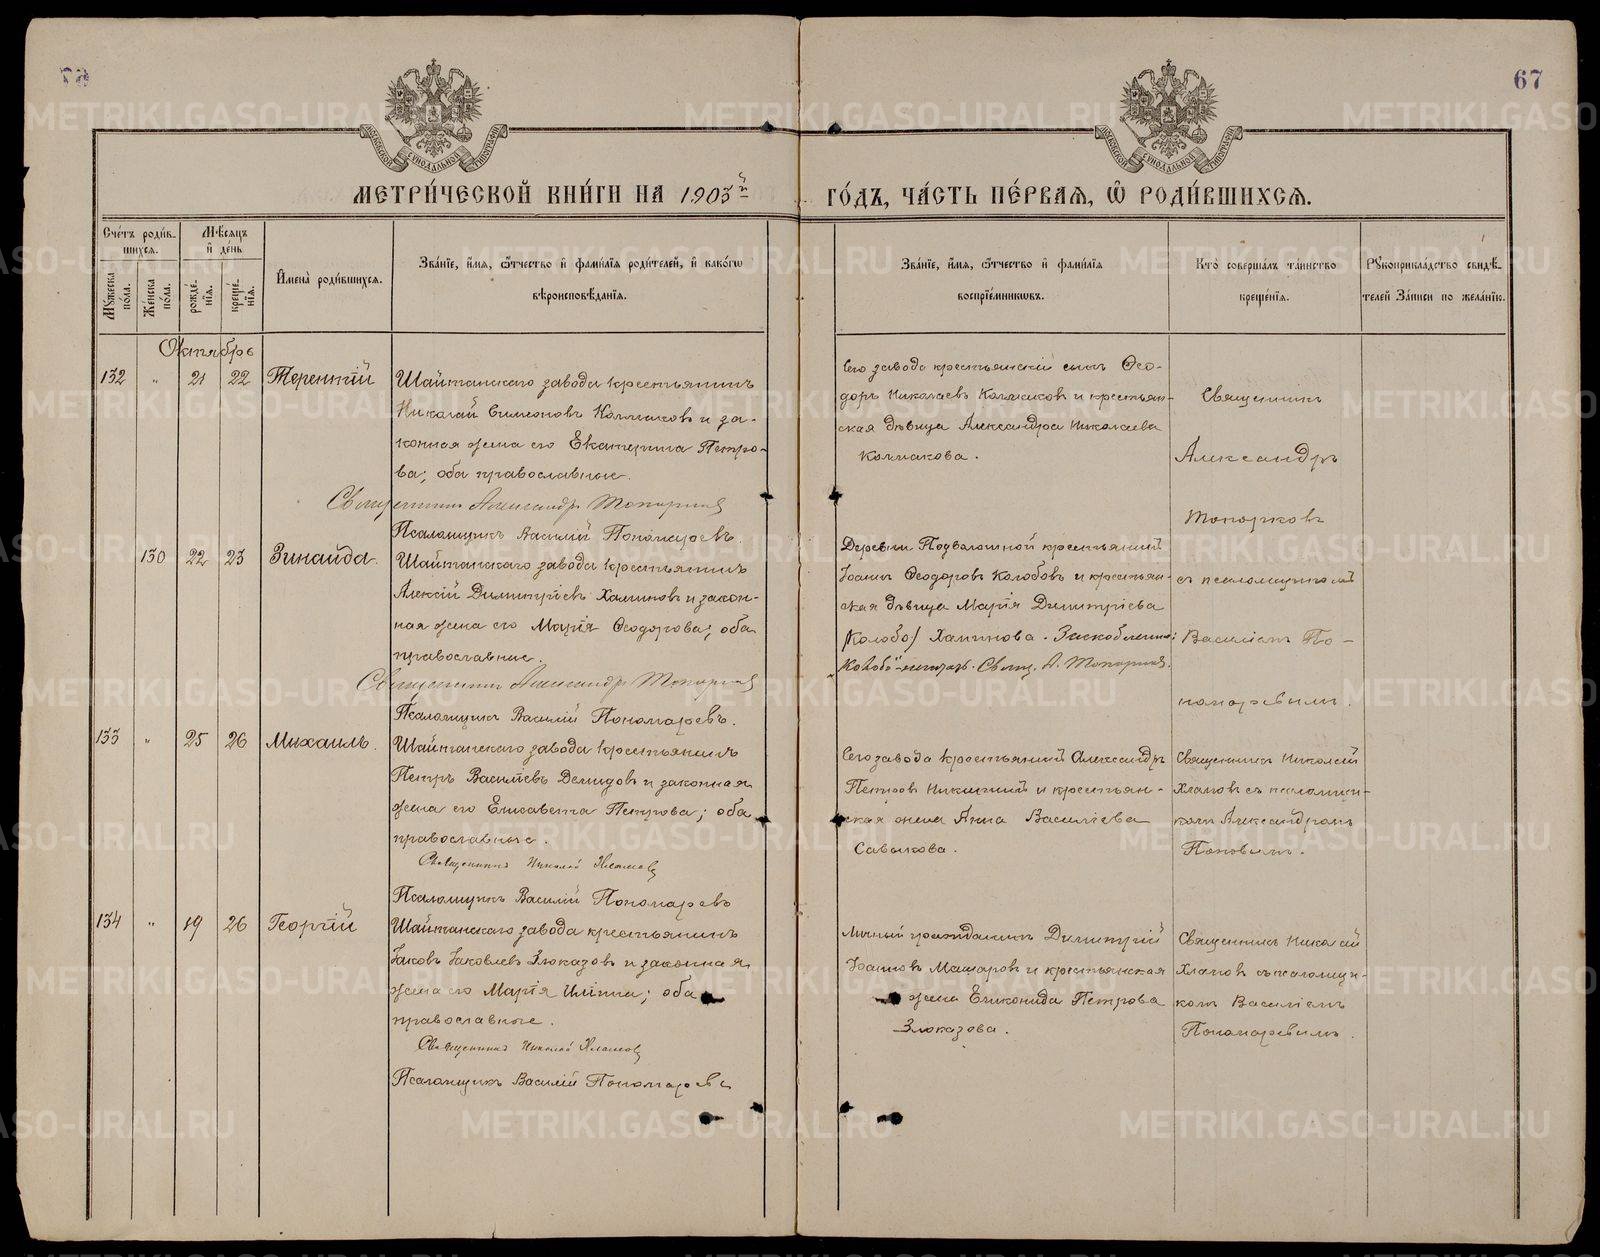 67
МЕТРИ́ЧЕСКОЙ КНИ́ГИ НА 1903й
ГО́ДЪ, ЧА́СТЬ ПЕ́РВАѦ, Ѽ РОДИ́ВШИХСѦ.
Сче́тъ роди́в-
шихсѧ.
Мѣсѧцъ
и҆ де́нь
Мꙋжеска по́ла.
Же́нска по́ла.
рожде́-
нїѧ.
креще́-
нїѧ.
И҆мена̀ роди́вшихсѧ.
Зва́нїе, и҆́мѧ, ѻ҆́тчество и҆ фами́лїѧ роди́телей, и҆ како́гѡ
вѣроисповѣ́данїѧ.
Зва́нїе, и҆́мѧ, ѻ҆́тчество и҆ фами́лїѧ
воспрїе́мникѡвъ.
Кто̀ соверша́лъ та́инство
креще́нїѧ.
Рꙋкоприкла́дство свидѣ́-
телей за́писи по жела́нїю.
Октябрь
132 " 21 22 Терентій
Шайтанскаго завода крестьянинъ
Николай Симеоновъ Колмаковъ и за-
конная жена его Екатерина Петро-
ва; оба православные.
Священникъ Александръ Топорковъ
Псаломщикъ Василій Пономаревъ.
Сего завода крестьянскій сынъ Ѳео-
доръ Николаевъ Колмаковъ и крестьян-
ская дѣвица Александра Николаева
Колмакова.
Священникъ
Александръ
Топорковъ
съ псаломщикомъ
Василіемъ По-
номаревымъ.
130 22 23 Зинаида.
Шайтанскаго завода крестьянинъ
Алексій Димитріевъ Халиновъ и закон-
ная жена его Марія Ѳеодорова; оба
православные.
Священникъ Александръ Топорковъ
Псаломщикъ Василій Пономаревъ.
Деревни Подволошной крестьянинъ
Іоаннъ Ѳеодоровъ Колобовъ и крестьян-
ская дѣвица Марія Димитріева
/Колобо/ Халинова.
Свящ. А. Топорковъ.
133 " 25 26 Михаилъ.
Шайтанскаго завода крестьянинъ
Петръ Василіевъ Демидовъ и законная
жена его Елисавета Петрова; оба
православные.
Священникъ Николай Хламовъ
Псаломщикъ Василій Пономаревъ
Сего завода крестьянинъ Александръ
Петровъ Никитинъ и крестьян-
ская жена Анна Василіева
Савыкова.
Священникъ Николай
Хламовъ съ псаломщи-
комъ Александромъ
Поповымъ.
134 " 19 26 Георгій
Шайтанскаго завода крестьянинъ
Іаковъ Іаковлевъ Злоказовъ и законная
жена его Марія Иліина; оба
православные.
Священникъ Николай Хламовъ
Псаломщикъ Василій Пономаревъ
Личный гражданинъ Димитрій
Іоанновъ Макаровъ и крестьянская
жена Епихонида Петрова
Злоказова.
Священникъ Николай
Хламовъ съ псаломщи-
комъ Василіемъ
Пономаревымъ.
METRIKI.GASO-URAL.RU